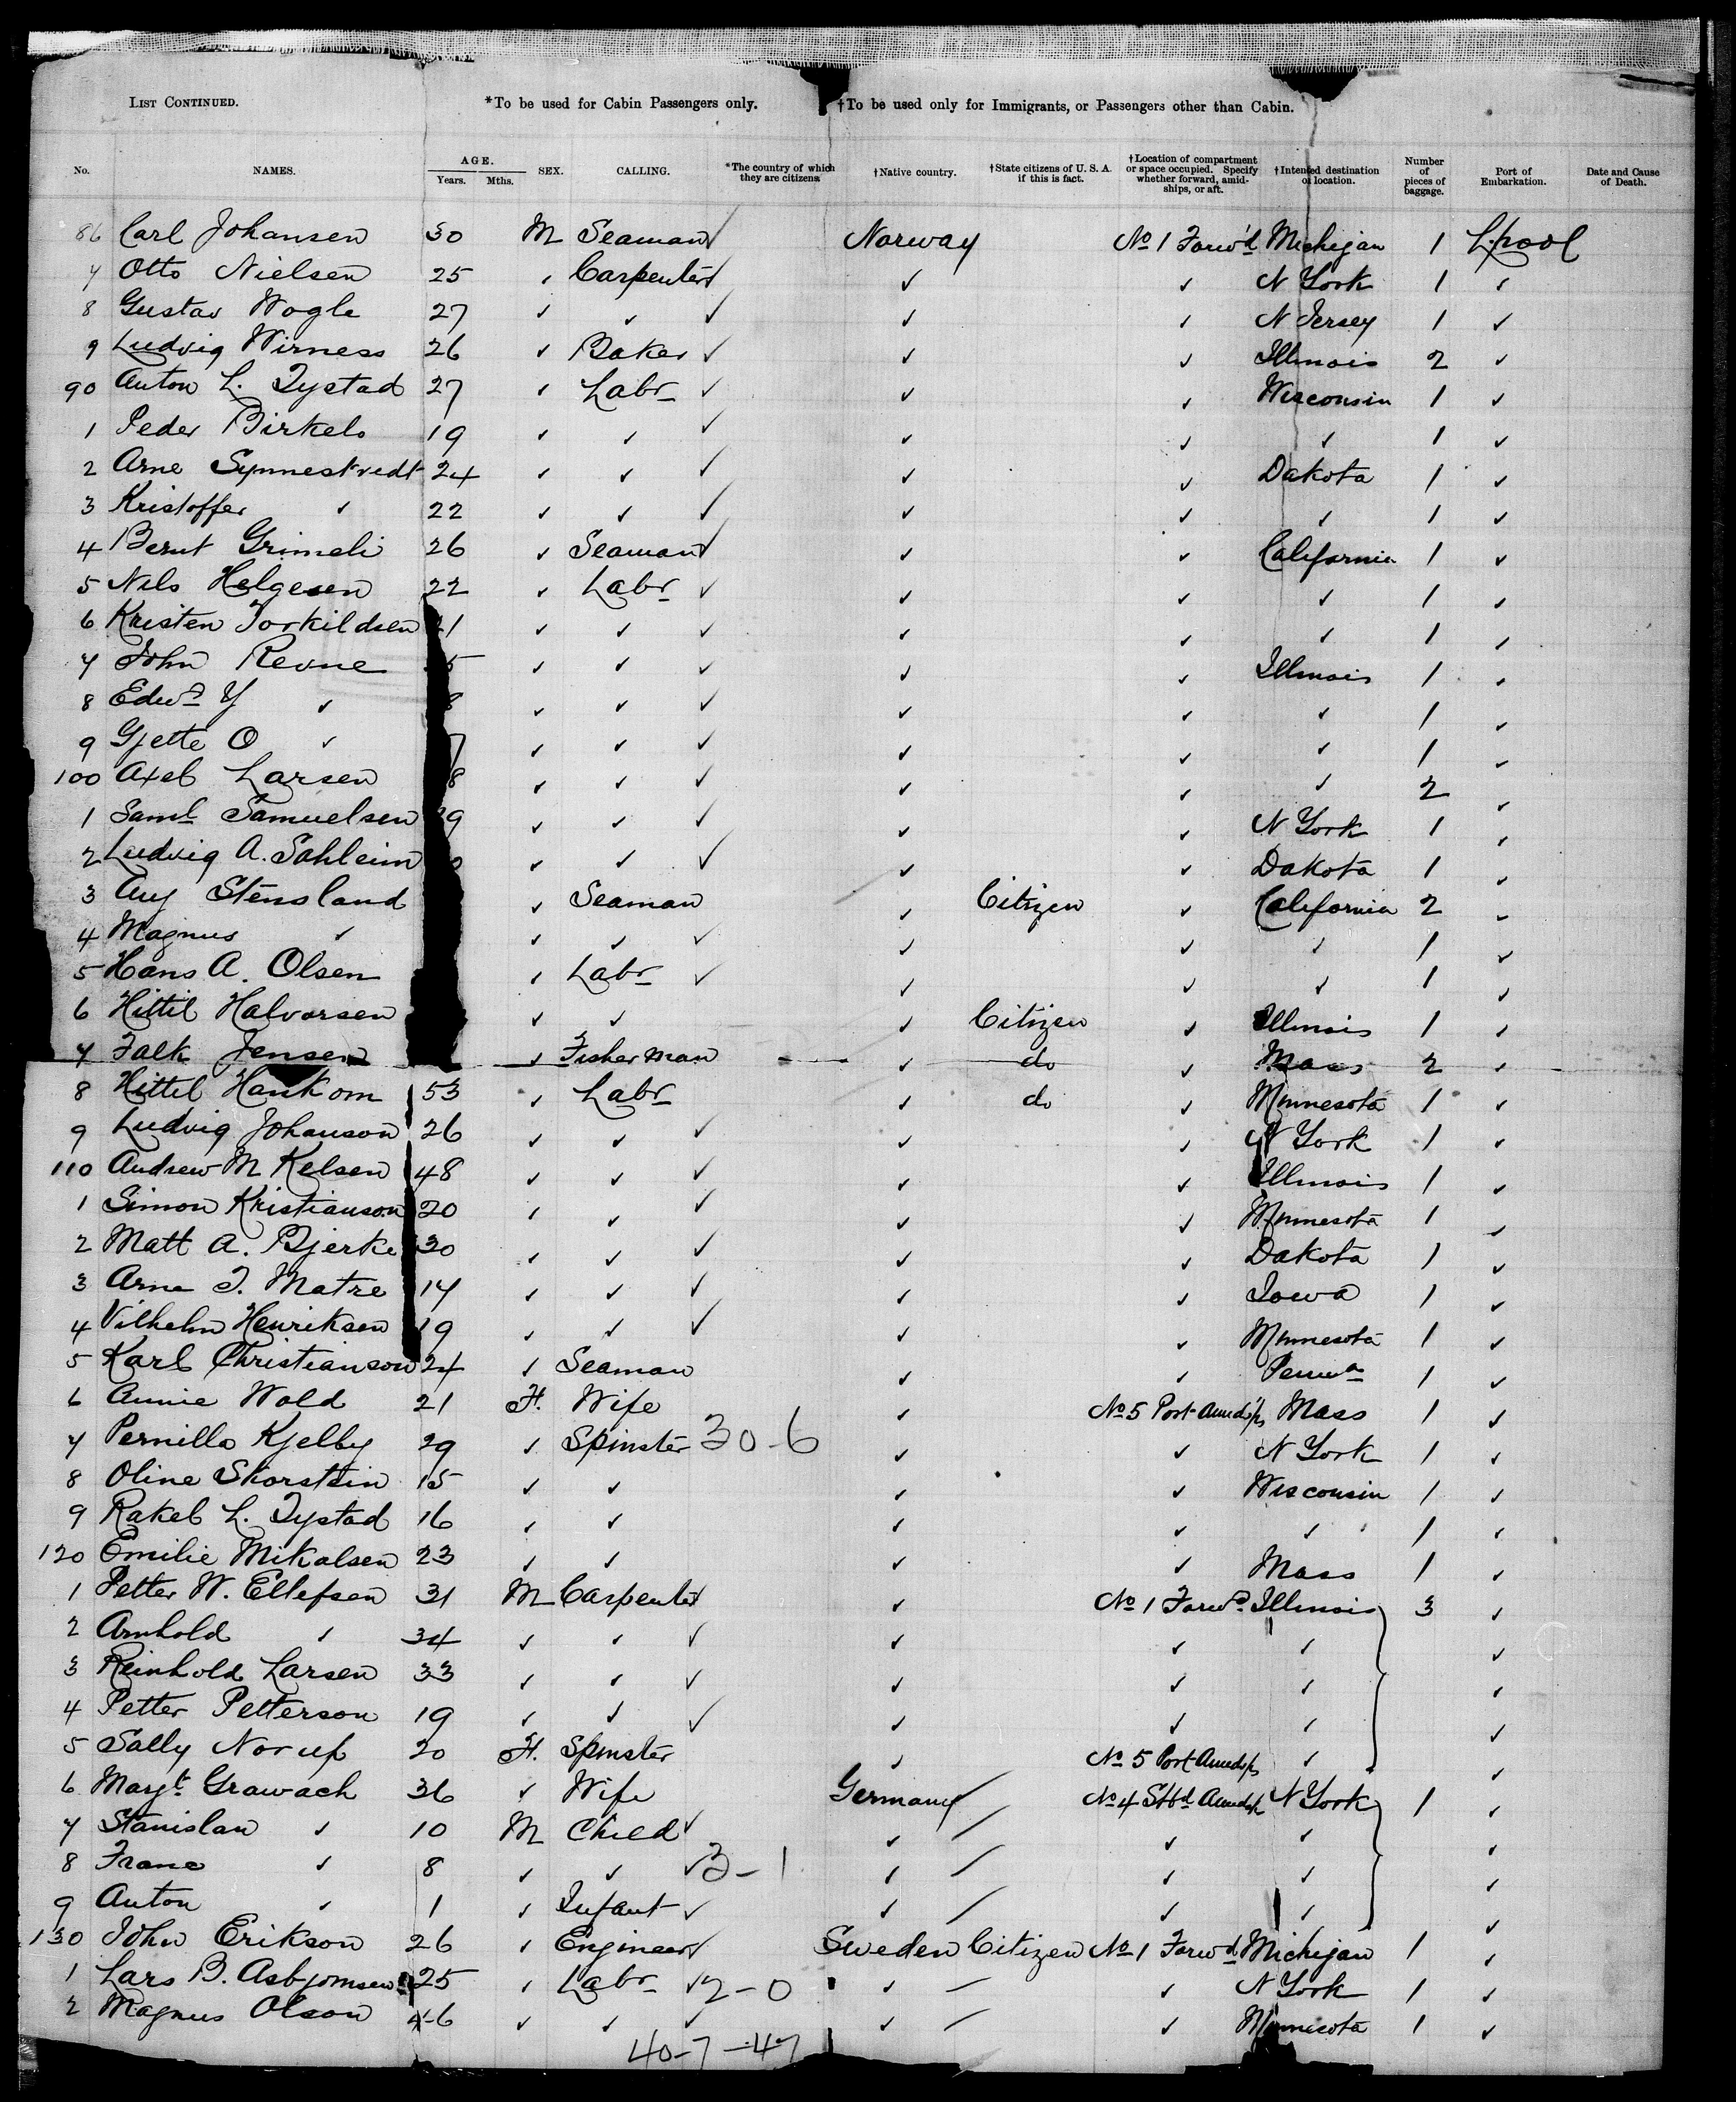 LIST CONTINUED. *To be used for Cabin Passengers only. †To be used only for Immigrants, or Passengers other than Cabin.
No. NAMES. AGE. Years. Mths. SEX. CALLING. *The country of which they are citizens †Native country. †State citizens of U. S. A. if this is fact. †Location of compartment or space occupied. Specify whether forward, amidships, or aft. †Intended destination or location. Number of pieces of baggage. Port of Embarkation. Date and Cause of Death.
86 Carl Johansen 30 M Seaman ✓ Norway No 1 Forw'd Michigan 1 L.pool
7 Otto Nielsen 25 ✓ Carpenter ✓ ✓ ✓ N York 1 ✓
8 Gustav Wogle 27 ✓ ✓ ✓ ✓ ✓ N Jersey 1 ✓
9 Ludvig Wirness 26 ✓ Baker ✓ ✓ ✓ Illinois 2 ✓
90 Anton L. Tystad 27 ✓ Labr ✓ ✓ ✓ Wisconsin 1 ✓
1 Peder Birkelo 19 ✓ ✓ ✓ ✓ ✓ ✓ 1 ✓
2 Arne Synnestvedt 24 ✓ ✓ ✓ ✓ ✓ Dakota 1 ✓
3 Kristoffer ✓ 22 ✓ ✓ ✓ ✓ ✓ ✓ 1 ✓
4 Bernt Grimeli 26 ✓ Seaman ✓ ✓ ✓ California 1 ✓
5 Nils Helgesen 22 ✓ Labr ✓ ✓ ✓ ✓ 1 ✓
6 Kristen Torkildsen 1 ✓ ✓ ✓ ✓ ✓ ✓ 1 ✓
7 John Revne 5 ✓ ✓ ✓ ✓ ✓ Illinois 1 ✓
8 Edwd Y ✓ 8 ✓ ✓ ✓ ✓ ✓ ✓ 1 ✓
9 Gjette O ✓ 7 ✓ ✓ ✓ ✓ ✓ ✓ 1 ✓
100 Axel Larsen 8 ✓ ✓ ✓ ✓ ✓ ✓ 2 ✓
1 Saml Samuelsen 9 ✓ ✓ ✓ ✓ ✓ N York 1 ✓
2 Ludvig A. Sahleim ✓ ✓ ✓ ✓ ✓ Dakota 1 ✓
3 Aug Stensland ✓ Seaman ✓ Citizen ✓ California 2 ✓
4 Magnus ✓ ✓ ✓ ✓ ✓ ✓ ✓ 1 ✓
5 Hans A. Olsen ✓ Labr ✓ ✓ ✓ ✓ 1 ✓
6 Kittil Halvorsen ✓ ✓ ✓ Citizen ✓ Illinois 1 ✓
7 Falk Jensen ✓ Fisherman ✓ do ✓ Mass 2 ✓
8 Kittel Hankom 53 ✓ Labr ✓ do ✓ Minnesota 1 ✓
9 Ludvig Johanson 26 ✓ ✓ ✓ ✓ ✓ N York 1 ✓
110 Andrew M Kelsen 48 ✓ ✓ ✓ ✓ ✓ Illinois 1 ✓
1 Simon Kristianson 20 ✓ ✓ ✓ ✓ ✓ Minnesota 1 ✓
2 Matt A. Bjerke 30 ✓ ✓ ✓ ✓ ✓ Dakota 1 ✓
3 Arne T. Matre 17 ✓ ✓ ✓ ✓ ✓ Iowa 1 ✓
4 Vilhelm Henriksen 19 ✓ ✓ ✓ ✓ ✓ Minnesota 1 ✓
5 Karl Christianson 24 ✓ Seaman ✓ ✓ Penna 1 ✓
6 Annie Wold 21 F. Wife ✓ No 5 Port Amids'ps Mass 1 ✓
7 Pernilla Kjelby 29 ✓ Spinster 30-6 ✓ ✓ N York 1 ✓
8 Oline Skorstein 15 ✓ ✓ ✓ ✓ Wisconsin 1 ✓
9 Rakel L. Tystad 16 ✓ ✓ ✓ ✓ ✓ 1 ✓
120 Emilie Mikalsen 23 ✓ ✓ ✓ ✓ Mass 1 ✓
1 Petter W. Ellefsen 31 M Carpenter ✓ ✓ No 1 Forwd. Illinois 3 ✓
2 Arnhold ✓ 34 ✓ ✓ ✓ ✓ ✓ ✓ ✓
3 Reinhold Larsen 33 ✓ ✓ ✓ ✓ ✓ ✓ ✓
4 Petter Petterson 19 ✓ ✓ ✓ ✓ ✓ ✓ ✓
5 Sally Norup 20 F. Spinster ✓ No 5 Port Amids'ps ✓ ✓
6 Margt. Grawach 36 ✓ Wife Germany No 4 Stbd Amids'ps N York 1 ✓
7 Stanislaw ✓ 10 M Child ✓ ✓ ✓ ✓ ✓
8 Franc ✓ 8 ✓ ✓ ✓ 3-1 ✓ ✓ ✓ ✓
9 Anton ✓ 1 ✓ Infant ✓ ✓ ✓ ✓ ✓
130 John Erikson 26 ✓ Engineer ✓ Sweden Citizen No 1 Forwd Michigan 1 ✓
1 Lars B. Asbjornsen 25 ✓ Labr ✓ 2-0 ✓ ✓ N York 1 ✓
2 Magnus Olson 46 ✓ ✓ ✓ ✓ ✓ Minnesota 1 ✓
40-7-47